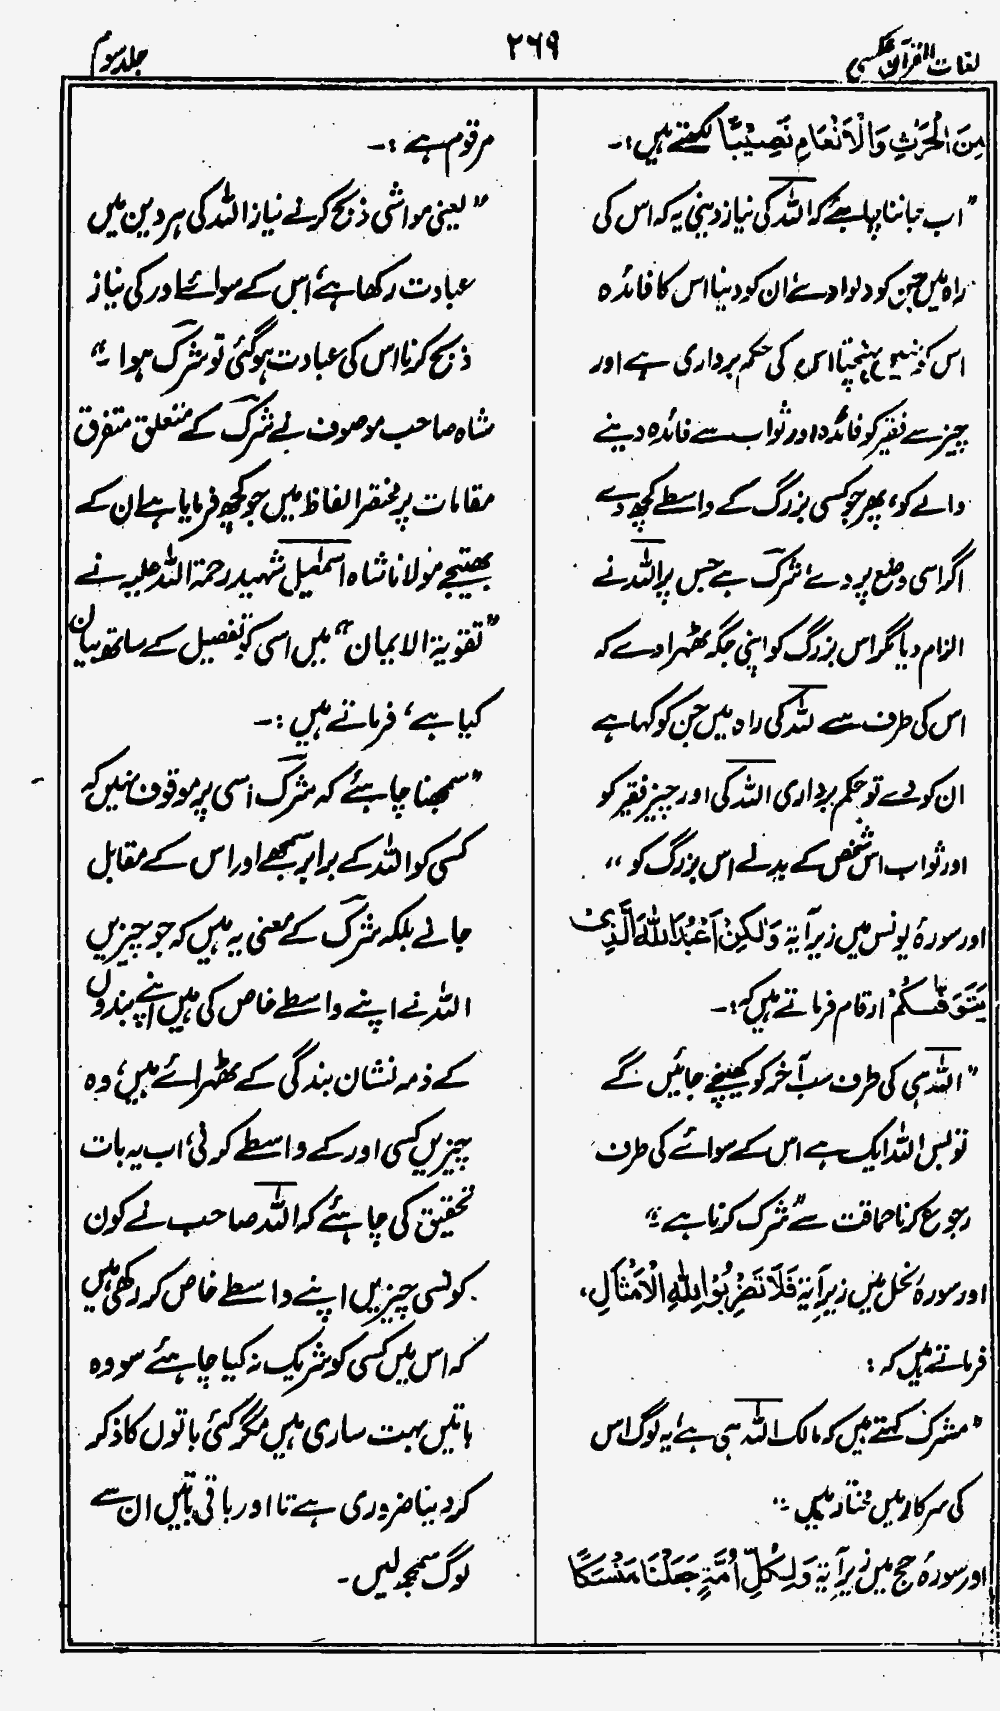 لغات القرآن عکسی
۲۶۹
جلد سوم
مِنَ الْحَرْثِ وَالْاَنْعَامِ نَصِيْبًا لکھتے ہیں:۔
”اب جاننا چاہئے کہ اللہ کی نیاز دینی یہ کہ اس کی
راہ میں جن کو دلوا دے ان کو دینا اس کا فائدہ
اس کو نہیں پہنچتا اس کی حکم برداری ہے اور
چیز سے فقیر کو فائدہ اور ثواب سے فائدہ دینے
والے کو، پھر جو کسی بزرگ کے واسطے کچھ دے
اگر اسی وضع پر دے شرک ہے جس پر اللہ نے
الزام دیا مگر اس بزرگ کو اپنی جگہ ٹھہرا دے کہ
اس کی طرف سے للہ کی راہ میں جن کو کہا ہے
ان کو دے تو حکم برداری اللہ کی اور چیز فقیر کو
اور ثواب اس شخص کے بدلے اس بزرگ کو“
اور سورۂ یونس میں زیر آیۃ وَلٰكِنْ اَعْبُدُ اللّٰهَ الَّذِىْ
يَتَوَفّٰىكُمْ ارقام فرماتے ہیں کہ:۔
”اللہ ہی کی طرف سب آخر کو کھینچے جائیں گے
تو بس اللہ ایک ہے اس کے سوائے کی طرف
رجوع کرنا حماقت سے شرک کرنا ہے“
اور سورۂ نحل میں زیر آیۃ فَلَا تَضْرِبُوْا لِلّٰهِ الْاَمْثَالَ،
فرماتے ہیں کہ:
”مشرک کہتے ہیں کہ مالک اللہ ہی ہے یہ لوگ اس
کی سرکار میں مختار ہیں۔“
اور سورۂ حج میں زیر آیۃ وَلِكُلِّ اُمَّةٍ جَعَلْنَا مَنْسَكًا
مرقوم ہے:۔
”یعنی مواشی ذبح کرنے نیاز اللہ کی ہر دین میں
عبادت رکھا ہے اس کے سوائے اور کی نیاز
ذبح کرنا اس کی عبادت ہو گئی تو شرک ہوا۔“
شاہ صاحب موصوف نے شرک کے متعلق متفرق
مقامات پر مختصر الفاظ میں جو کچھ فرمایا ہے ان کے
بھتیجے مولانا شاہ اسمٰعیل شہید رحمۃ اللہ علیہ نے
”تقویۃ الایمان“ میں اسی کو تفصیل کے ساتھ بیان
کیا ہے، فرماتے ہیں:۔
”سمجھنا چاہئے کہ شرک اسی پر موقوف نہیں کہ
کسی کو اللہ کے برابر سمجھے اور اس کے مقابل
جانے بلکہ شرک کے معنی یہ ہیں کہ جو چیزیں
اللہ نے اپنے واسطے خاص کی ہیں اپنے بندوں
کے ذمہ نشان بندگی کے ٹھہرائے ہیں، وہ
چیزیں کسی اور کے واسطے کرنی، اب یہ بات
تحقیق کی چاہئے کہ اللہ صاحب نے کون
کونسی چیزیں اپنے واسطے خاص کر رکھی ہیں
کہ اس میں کسی کو شریک نہ کیا چاہئے سو وہ
باتیں بہت ساری ہیں مگر کئی باتوں کا ذکر
کر دینا ضروری ہے تا اور باقی باتیں ان سے
لوگ سمجھ لیں۔